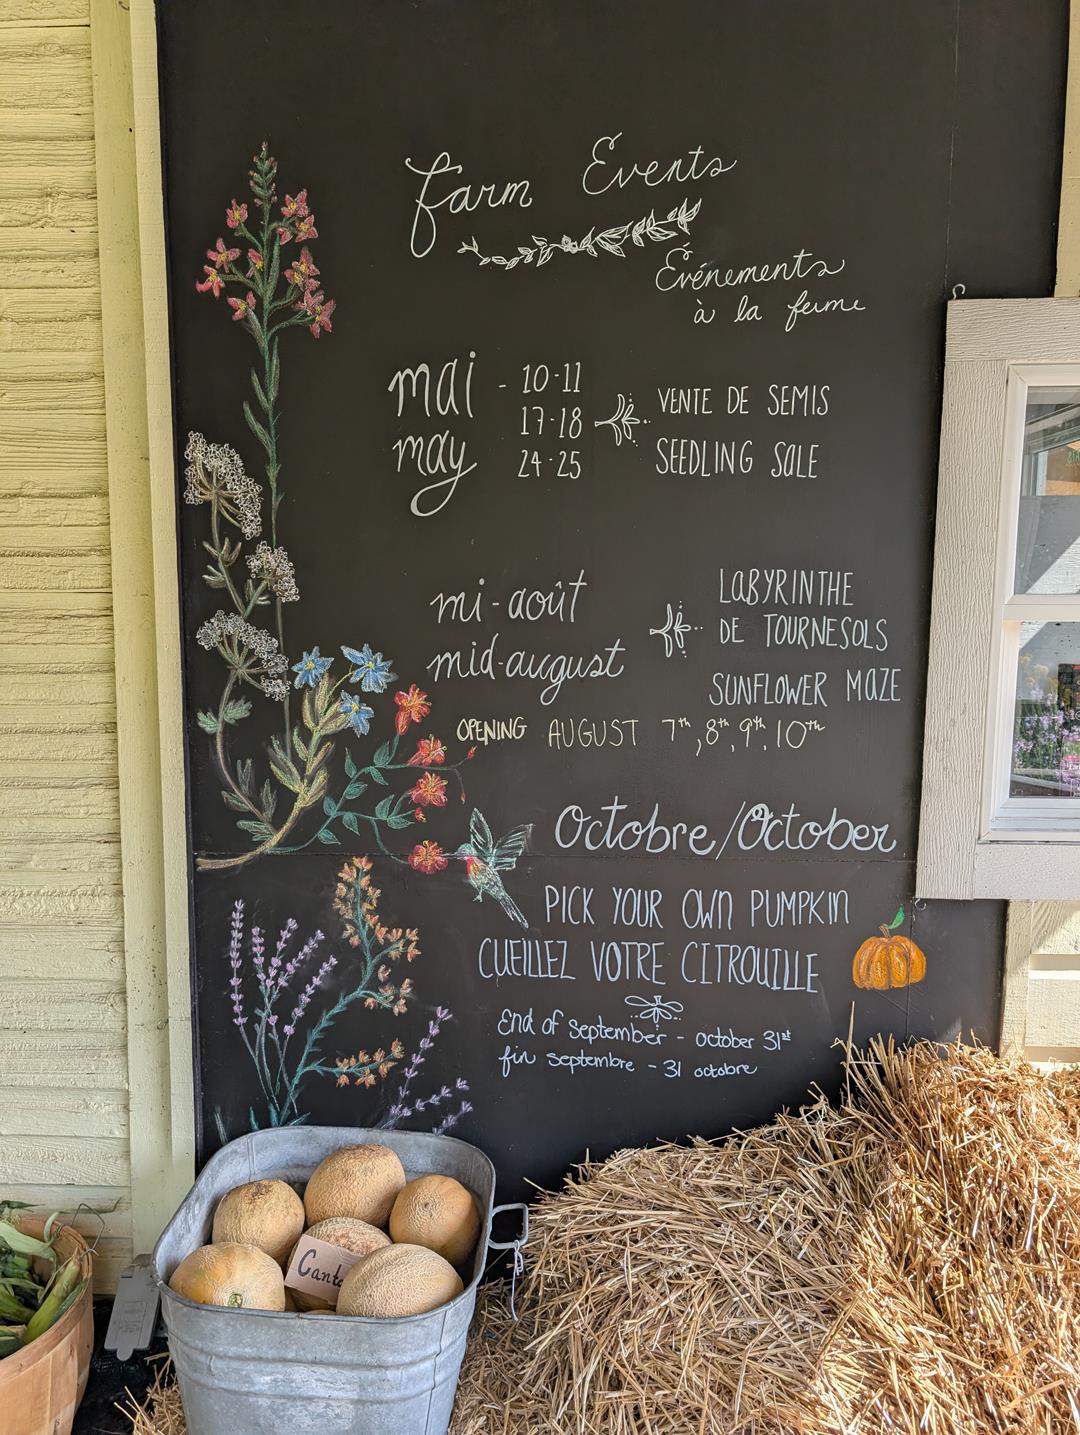 Farm Events
Événements
à la ferme
mai - 10-11
may 17-18
24-25
VENTE DE SEMIS
SEEDLING SALE
mi-août
mid-august
LABYRINTHE
DE TOURNESOLS
SUNFLOWER MAZE
OPENING AUGUST 7th, 8th, 9th, 10th
Octobre/October
PICK YOUR OWN PUMPKIN
CUEILLEZ VOTRE CITROUILLE
End of September - october 31st
fin septembre - 31 octobre